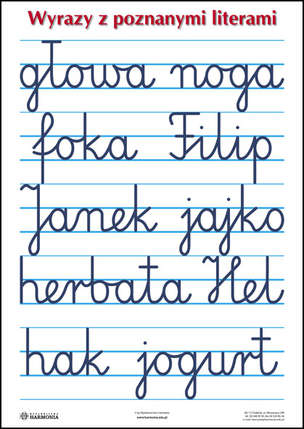 Wyrazy z poznanymi literami
głowa noga
foka Filip
Janek jajko
herbata Hel
hak jogurt
HARMONIA